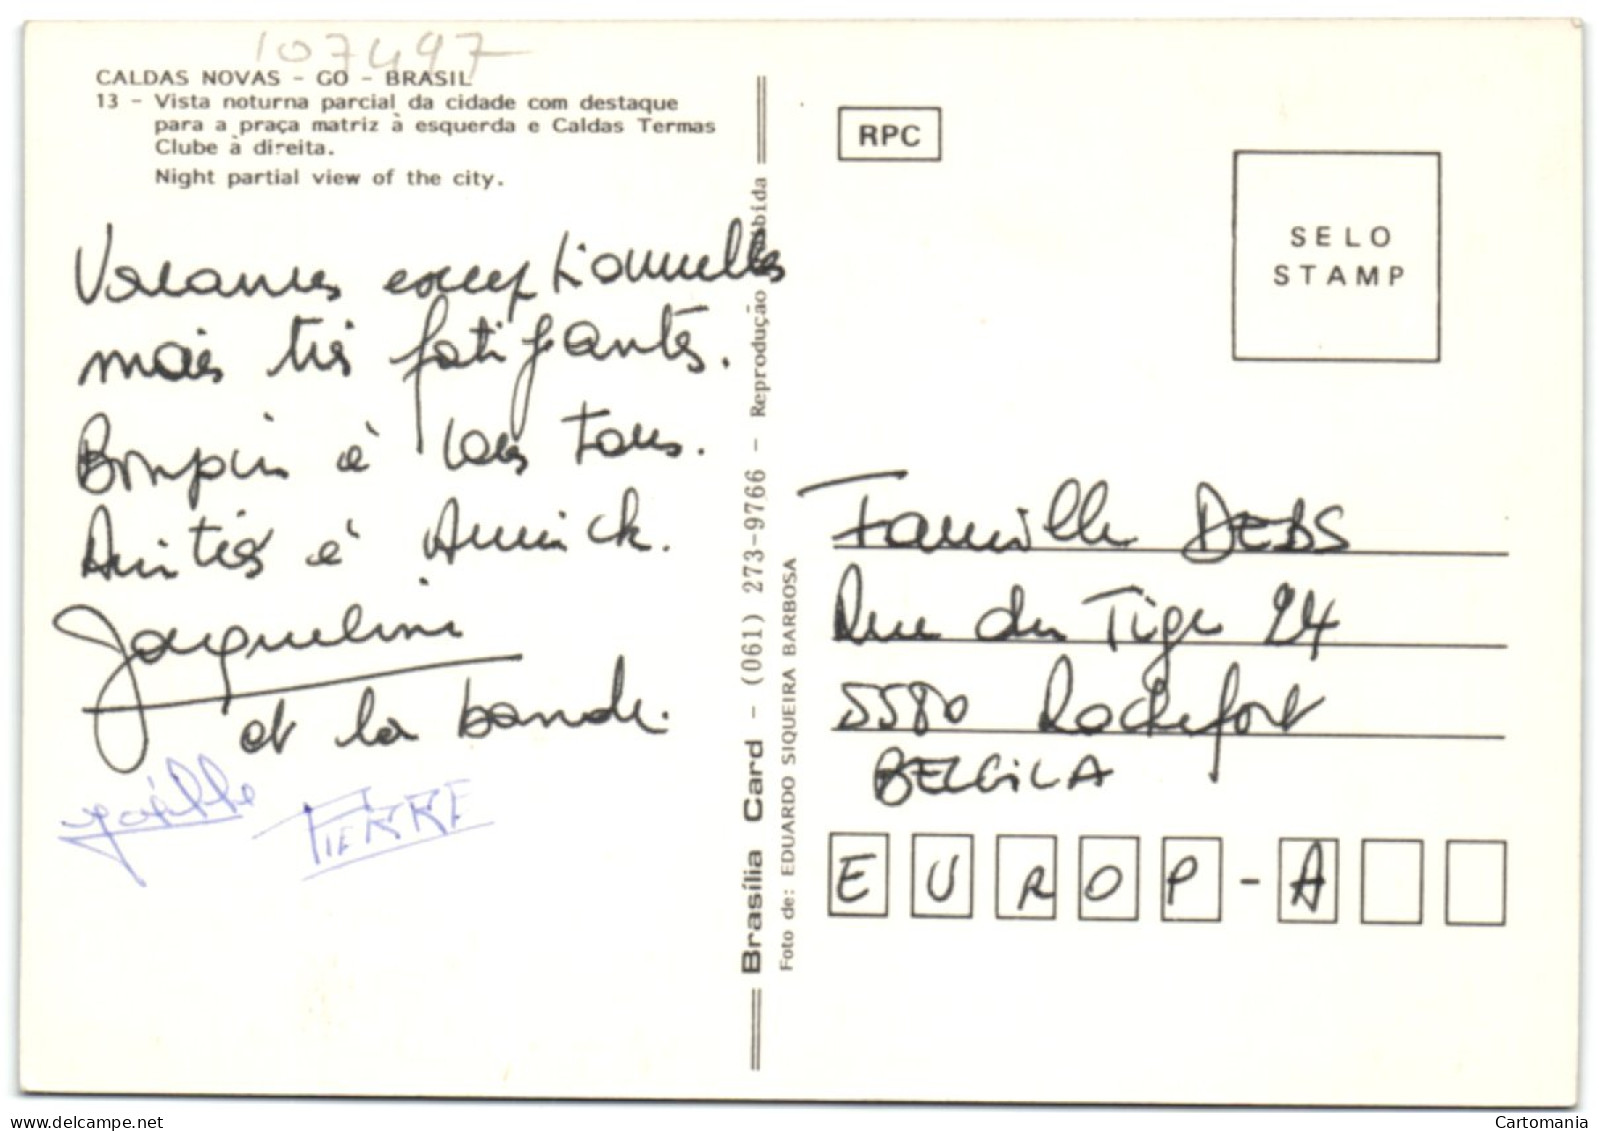 107497
CALDAS NOVAS - GO - BRASIL
13 - Vista noturna parcial da cidade com destaque
para a praça matriz à esquerda e Caldas Termas
Clube à direita.
Night partial view of the city.
Vacances exceptionnelles
mais très fatigantes.
à vous tous.
Amitiés à Annick.
Jacqueline
et la bande.
Joëlle PIERRE
Brasília Card - (061) 273-9766 - Reprodução
Foto de: EDUARDO SIQUEIRA BARBOSA
RPC
SELO
STAMP
Famille DEBS
Rue du Tige 24
5580 Rochefort
BELGICA
E U R O P - A
Cartomania